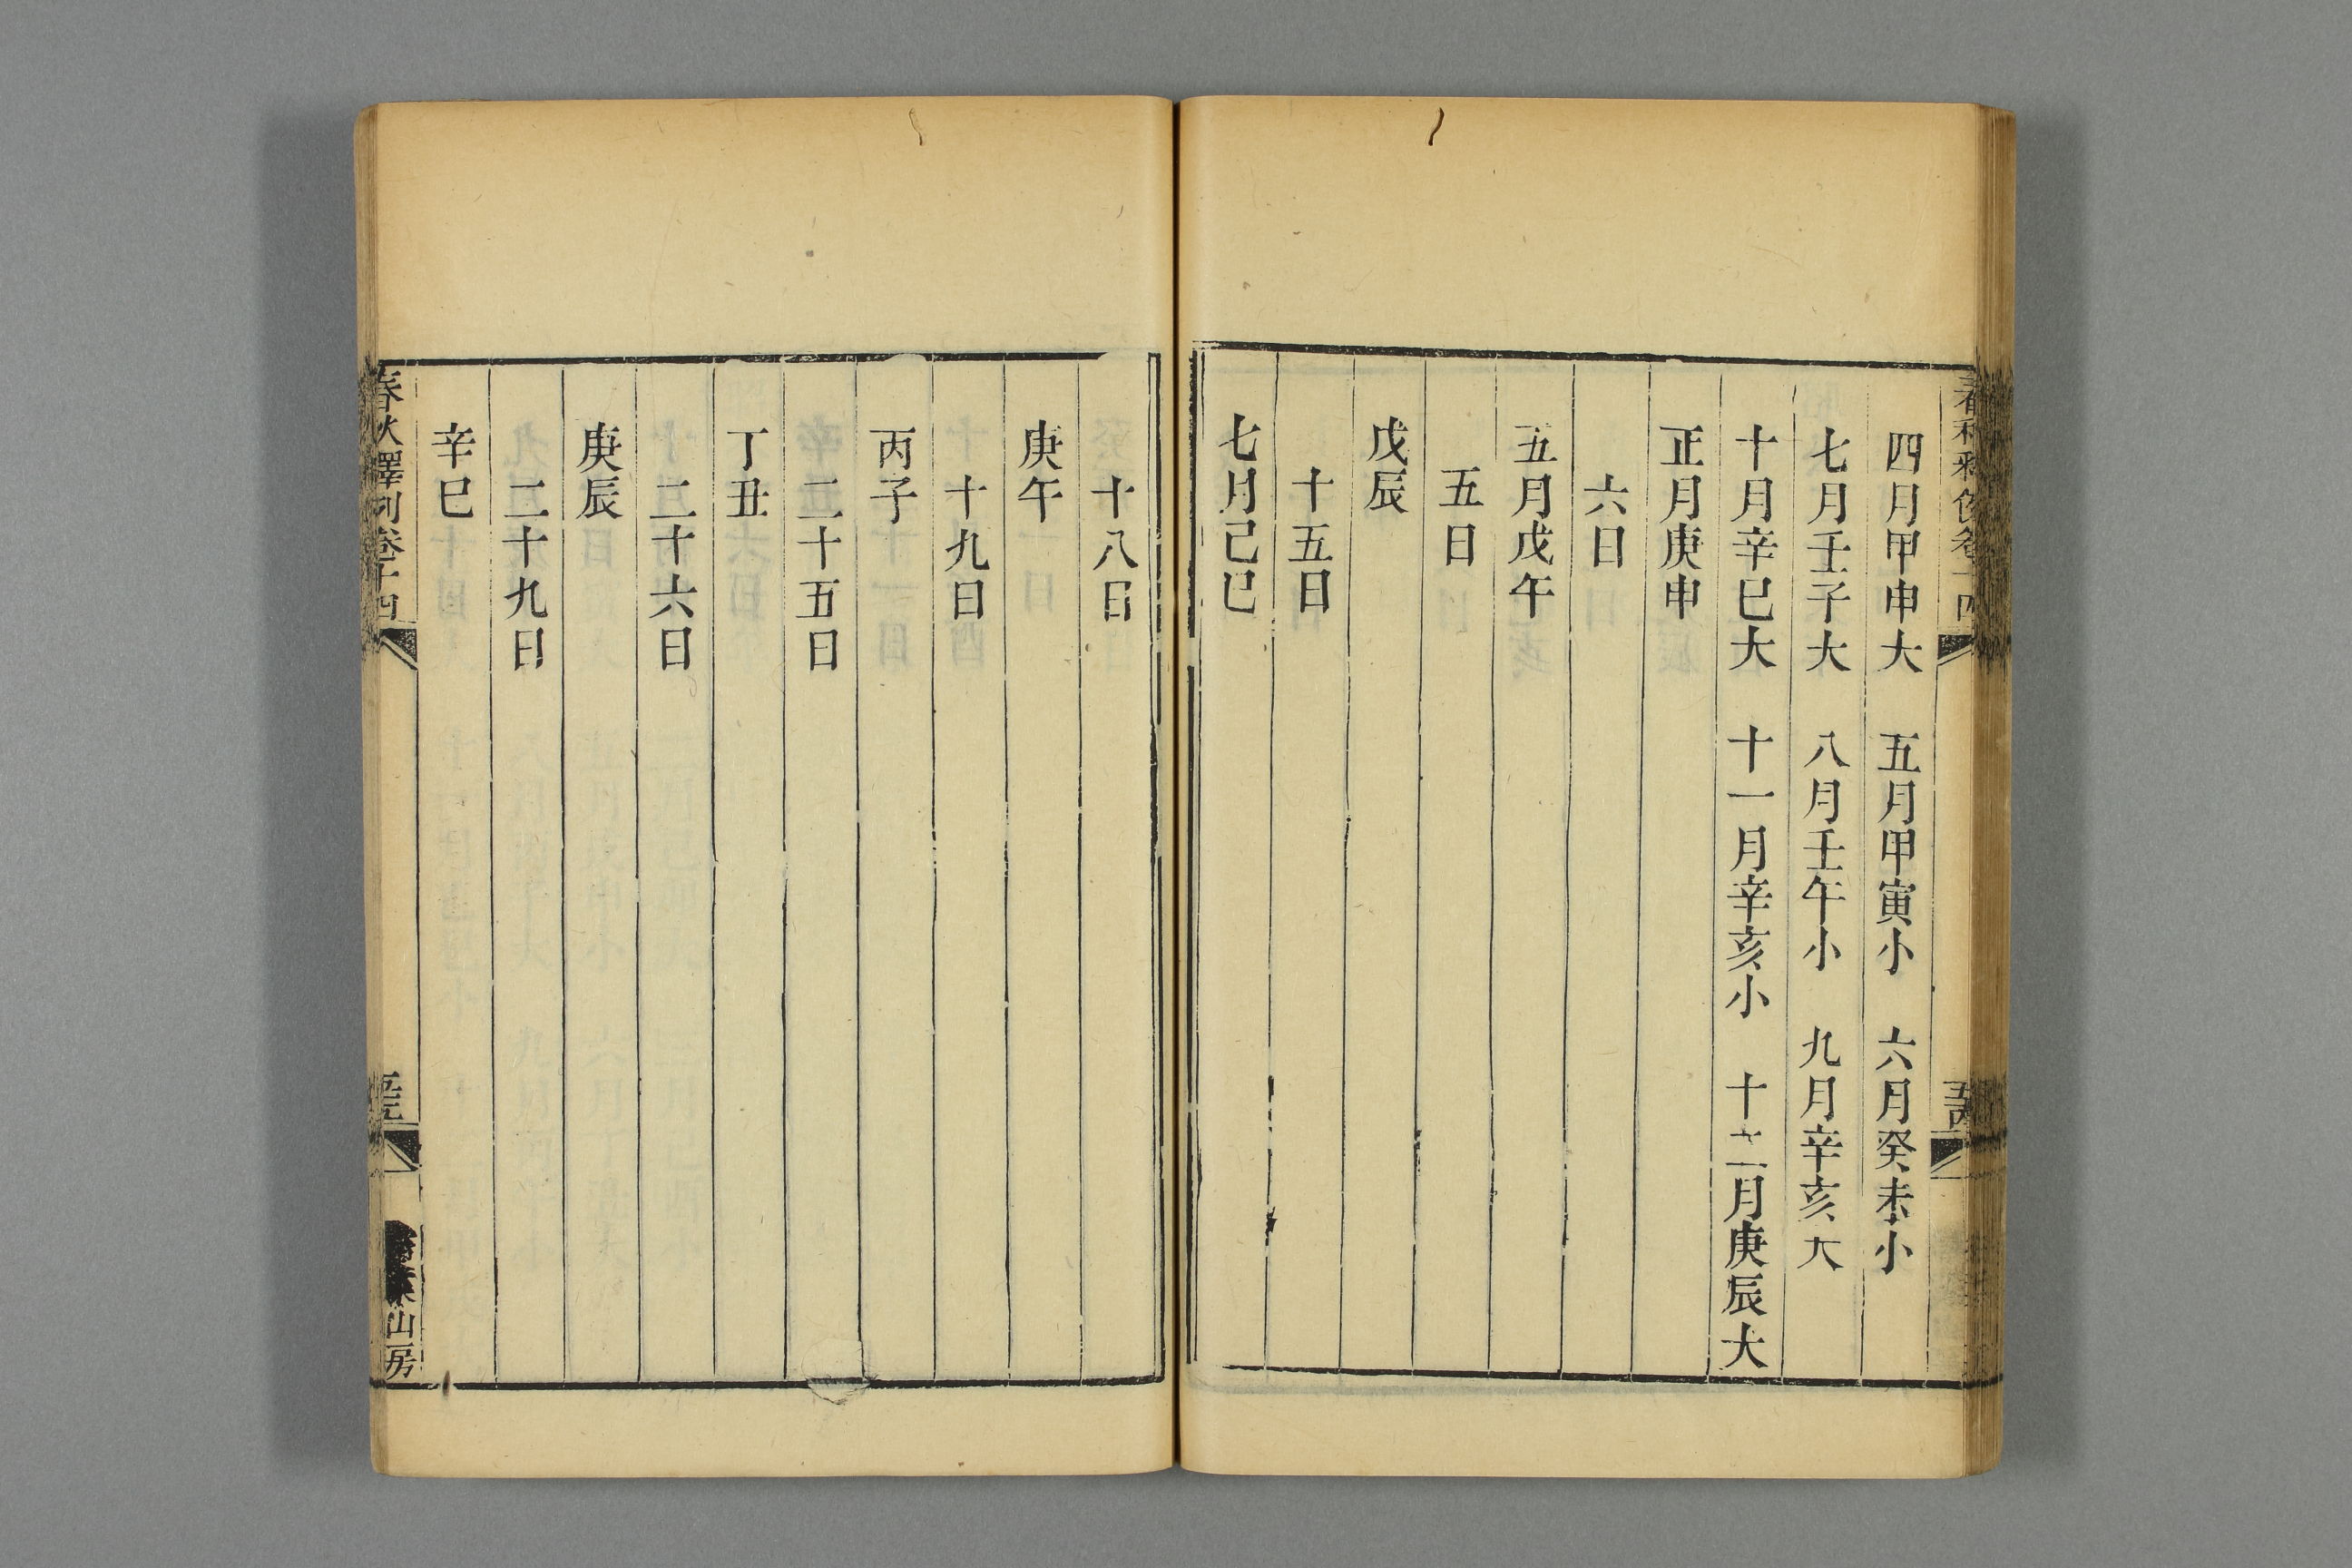 四月甲申大　五月甲寅小　六月癸未小
七月壬子大　八月壬午小　九月辛亥大
十月辛巳大　十一月辛亥小　十二月庚辰大
正月庚申
六日
五月戊午
五日
戊辰
十五日
七月己巳
十八日
庚午
十九日
丙子
二十五日
丁丑
二十六日
庚辰
二十九日
辛巳
春秋釋例卷十四
山房